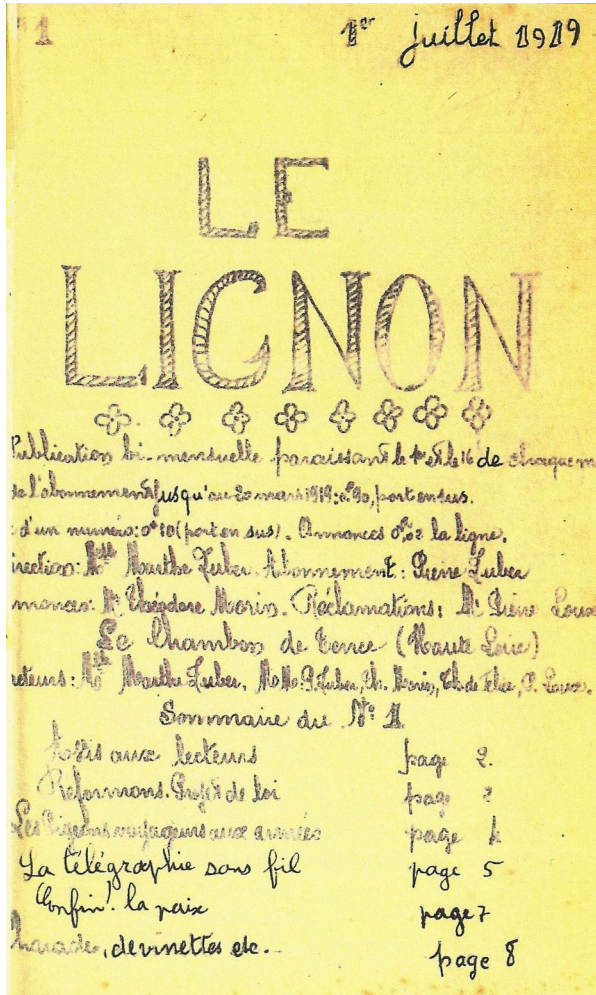 1
1er juillet 1919
LE
LIGNON
Publication bi-mensuelle paraissant le 1er et le 16 de chaque m
de l'abonnement jusqu'au 20 mars 1919: 0f90, port en sus.
d'un numéro: 0f10 (port en sus). Annonces la ligne.
irection: Mlle Marthe Abonnement: Pierre
nonces: Mr Théodore Morin. Réclamations: Mr Pierre Loux
Le Chambon de Tence (Haute Loire)
cteurs: Mlle Marthe MM. P. Th. Morin, P. Loux.
Sommaire du No 1
Avis aux lecteurs page 2.
Reformons. Projet de loi page 2
Les Pigeons voyageurs aux armées page 4
La télégraphie sans fil page 5
Enfin! la paix page 7
harades, devinettes etc. page 8